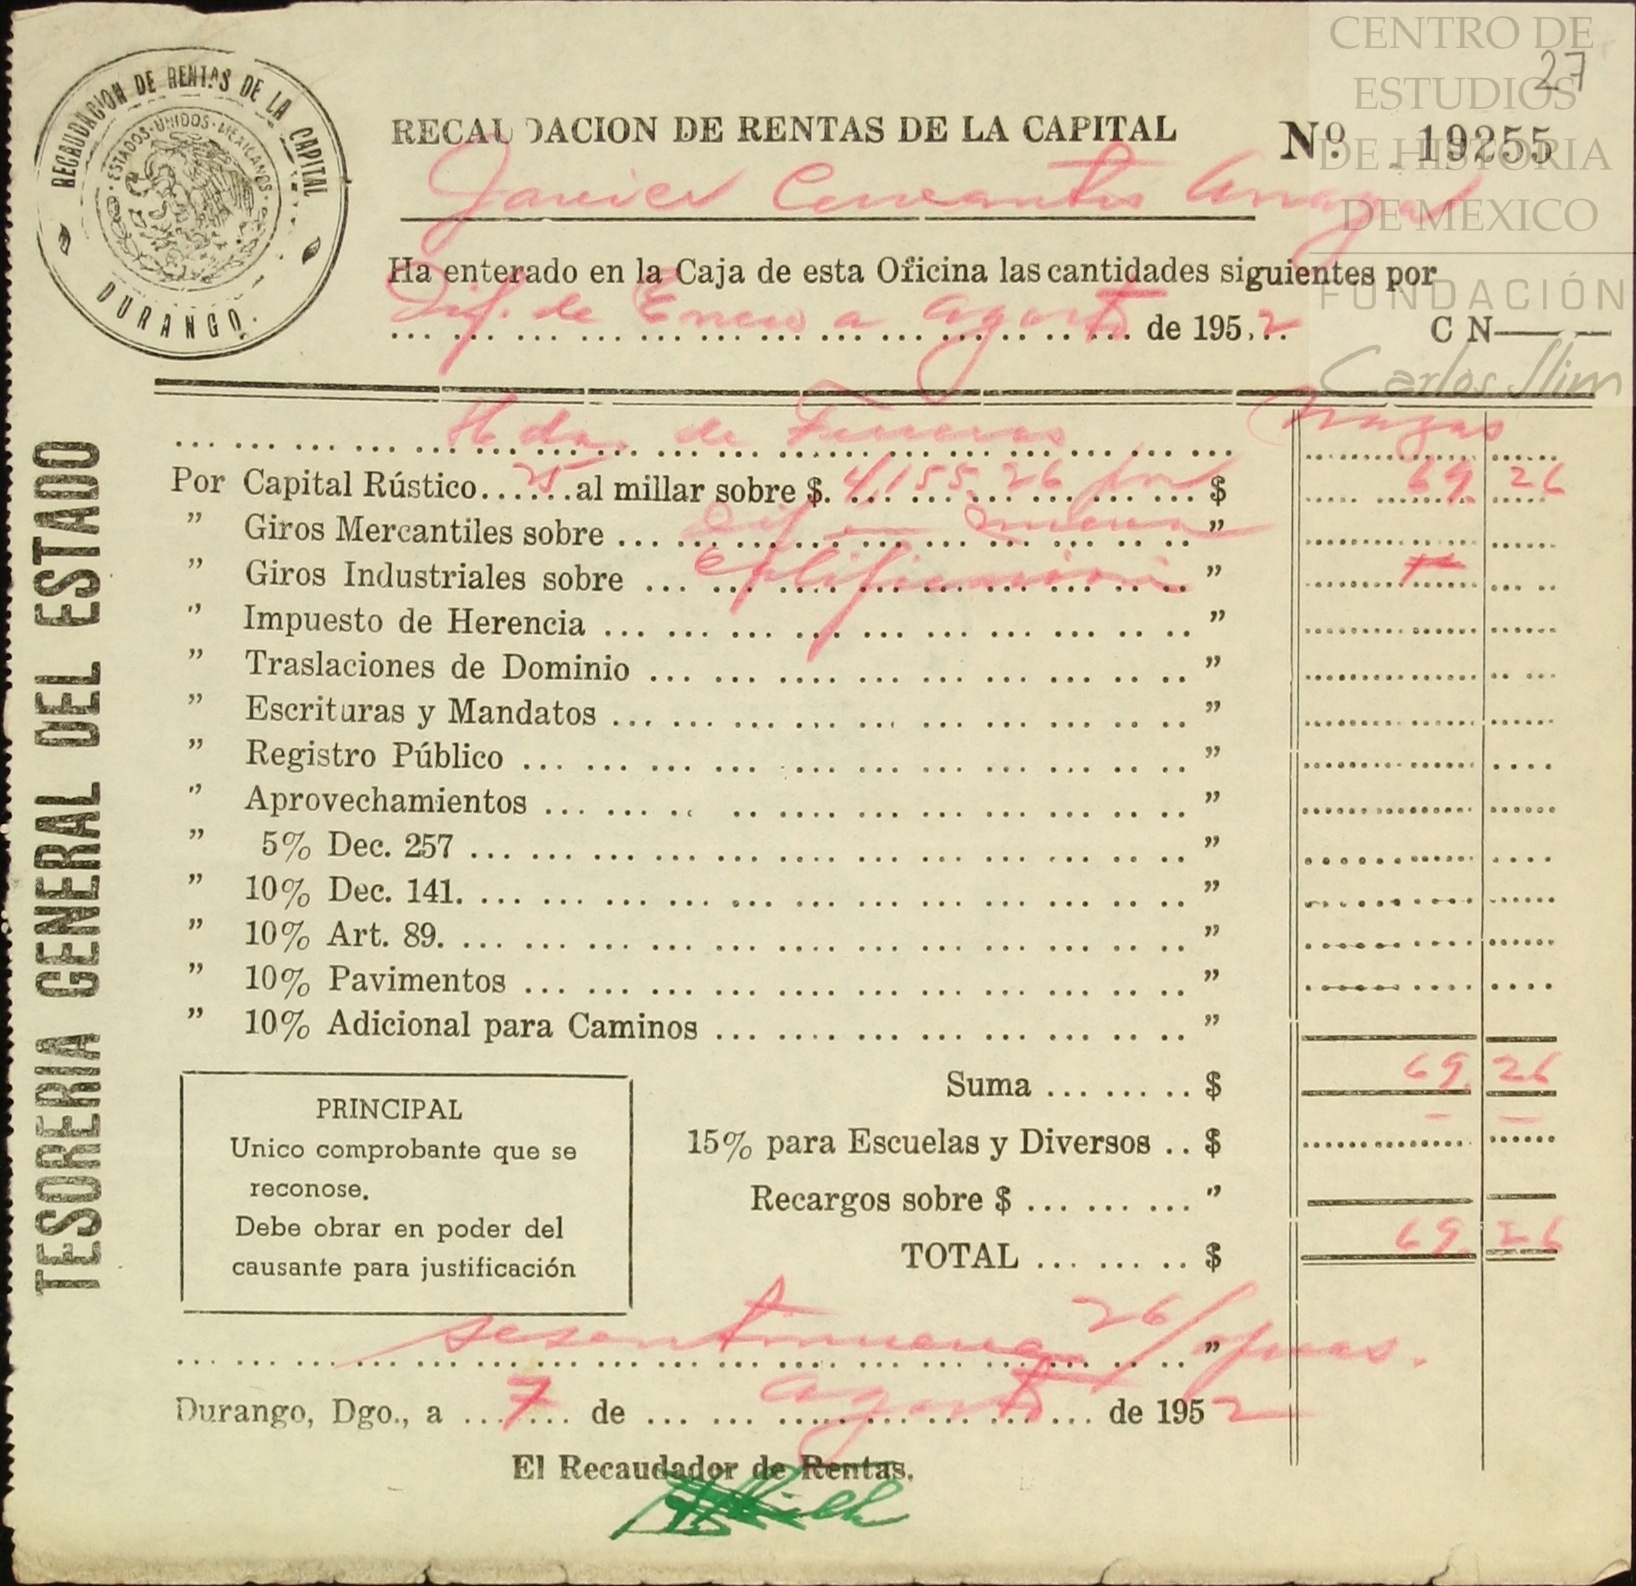 CENTRO DE
ESTUDIOS
DE HISTORIA
DE MEXICO
FUNDACIÓN
Carlos Slim
27
RECAUDACION DE RENTAS DE LA CAPITAL
ESTADOS·UNIDOS·MEXICANOS
DURANGO.
RECAUDACION DE RENTAS DE LA CAPITAL Nº 19255
Javier Cervantes
Ha enterado en la Caja de esta Oficina las cantidades siguientes por
Dif. de Enero a Agosto de 1952 C N
TESORERIA GENERAL DEL ESTADO
Hda. de
Por Capital Rústico 25 al millar sobre $ 4,155.26 por $ 69.26
" Giros Mercantiles sobre Dif en nueva "
" Giros Industriales sobre calificación "
" Impuesto de Herencia "
" Traslaciones de Dominio "
" Escrituras y Mandatos "
" Registro Público "
" Aprovechamientos "
" 5% Dec. 257 "
" 10% Dec. 141. "
" 10% Art. 89. "
" 10% Pavimentos "
" 10% Adicional para Caminos "
Suma $ 69.26
15% para Escuelas y Diversos $ — —
Recargos sobre $ "
TOTAL $ 69.26
PRINCIPAL
Unico comprobante que se
reconose.
Debe obrar en poder del
causante para justificación
sesentinueve 26/ "
Durango, Dgo., a 7 de agosto de 1952
El Recaudador de Rentas.